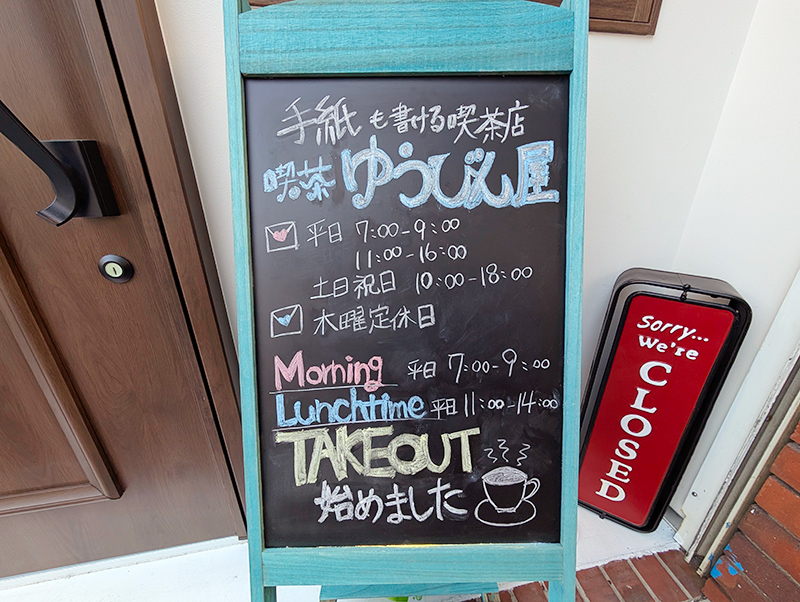 手紙も書ける喫茶店
喫茶ゆうびん屋
平日 7:00-9:00
11:00-16:00
土日祝日 10:00-18:00
木曜定休日
Morning 平日 7:00-9:00
Lunchtime 平日 11:00-14:00
TAKEOUT
始めました
Sorry...
We're
CLOSED